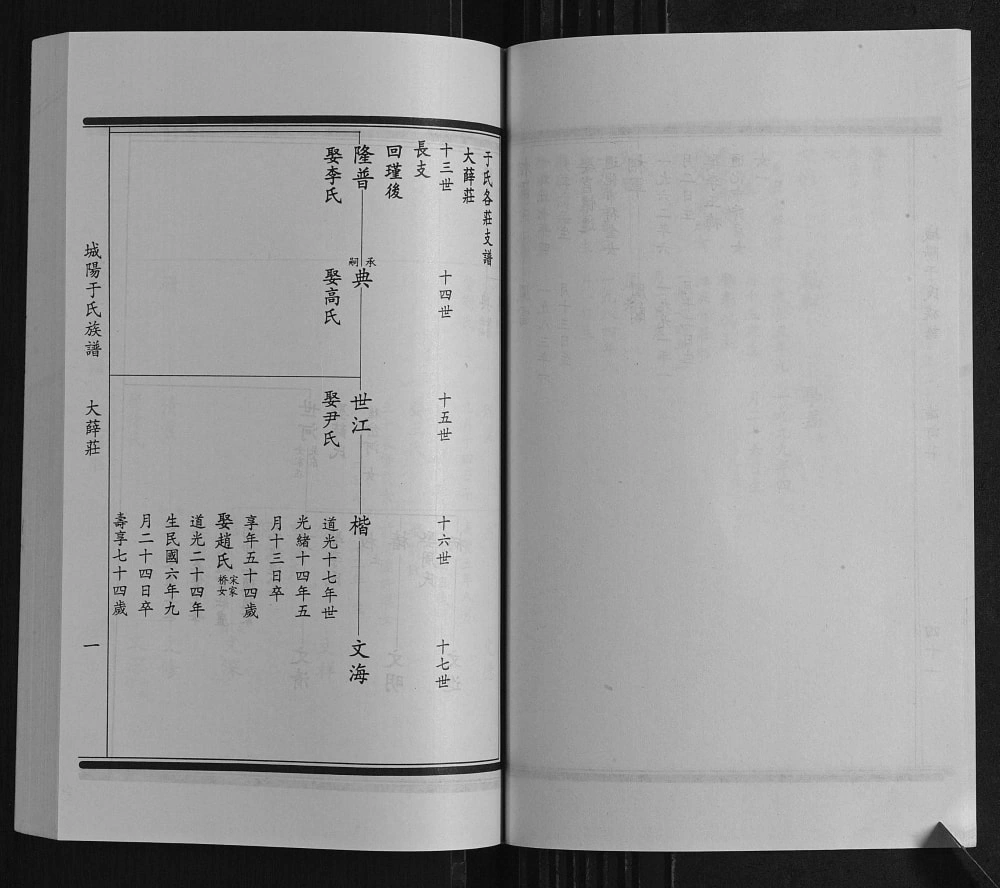 于氏各莊支譜
大薛莊
十三世
十四世
十五世
十六世
十七世
長支
回瑾後
隆普
娶李氏
承
嗣
典
娶高氏
世江
娶尹氏
楷
道光十七年世
光緒十四年五
月十三日卒
享年五十四歲
娶趙氏
宋家
桥女
道光二十四年
生民國六年九
月二十四日卒
壽享七十四歲
文海
城陽于氏族譜
大薛莊
一